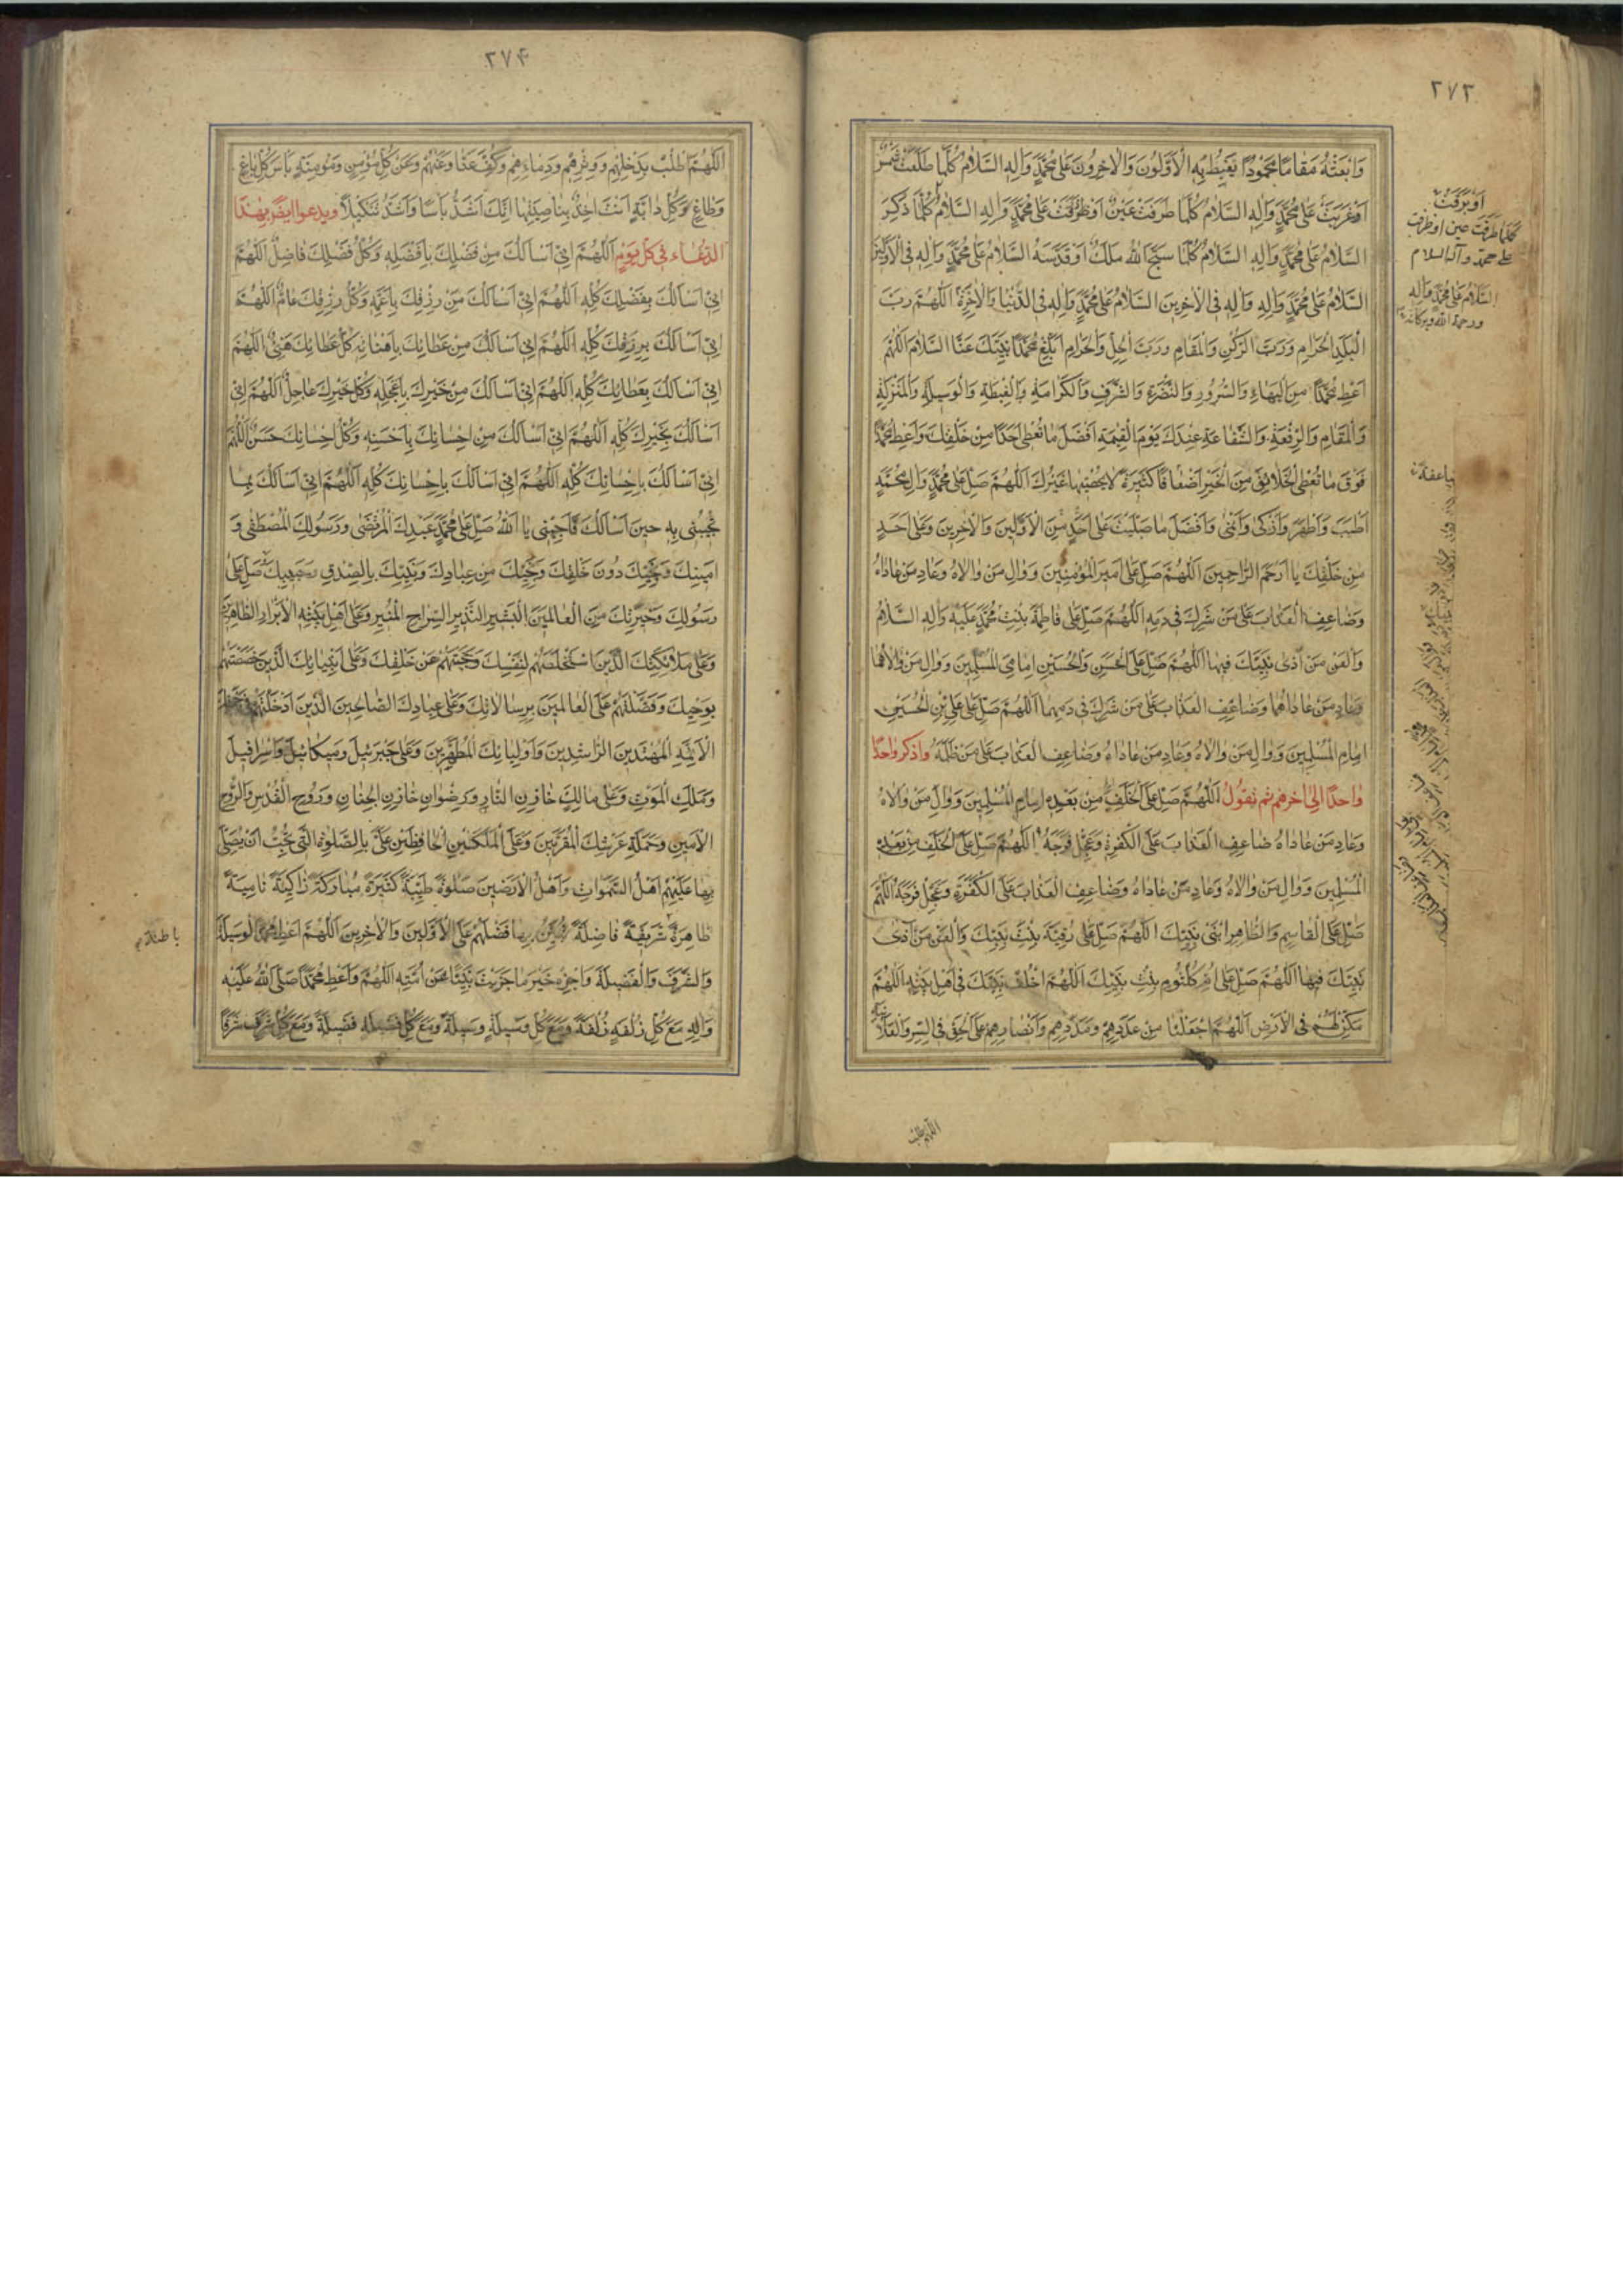 ٢٧٣
وَابْعَثْهُ مَقَامًا مَحْمُودًا يَغْبِطُهُ بِهِ الْأَوَّلُونَ وَالْآخِرُونَ عَلَى مُحَمَّدٍ وَآلِهِ السَّلَامُ كُلَّمَا طَلَعَتْ شَمْسٌ
أَوْ غَرَبَتْ عَلَى مُحَمَّدٍ وَآلِهِ السَّلَامُ كُلَّمَا طَرَفَتْ عَيْنٌ أَوْ ذَرَفَتْ عَلَى مُحَمَّدٍ وَآلِهِ السَّلَامُ كُلَّمَا ذُكِرَ
السَّلَامُ عَلَى مُحَمَّدٍ وَآلِهِ السَّلَامُ كُلَّمَا سَبَّحَ اللهَ مَلَكٌ أَوْ قَدَّسَهُ السَّلَامُ عَلَى مُحَمَّدٍ وَآلِهِ فِي الْأَوَّلِينَ
السَّلَامُ عَلَى مُحَمَّدٍ وَآلِهِ فِي الْآخِرِينَ السَّلَامُ عَلَى مُحَمَّدٍ وَآلِهِ فِي الدُّنْيَا وَالْآخِرَةِ اللَّهُمَّ رَبَّ
الْبَلَدِ الْحَرَامِ وَرَبَّ الرُّكْنِ وَالْمَقَامِ وَرَبَّ الْحِلِّ وَالْحَرَامِ أَبْلِغْ مُحَمَّدًا نَبِيَّكَ عَنَّا السَّلَامَ اللَّهُمَّ
أَعْطِ مُحَمَّدًا مِنَ الْبَهَاءِ وَالسُّرُورِ وَالنَّضْرَةِ وَالشَّرَفِ وَالْكَرَامَةِ وَالْغِبْطَةِ وَالْوَسِيلَةِ وَالْمَنْزِلَةِ
وَالْمَقَامِ وَالرِّفْعَةِ وَالشَّفَاعَةِ عِنْدَكَ يَوْمَ الْقِيٰمَةِ أَفْضَلَ مَا تُعْطِي أَحَدًا مِنْ خَلْقِكَ وَأَعْطِ مُحَمَّدًا
فَوْقَ مَا تُعْطِي الْخَلَائِقَ مِنَ الْخَيْرِ أَضْعَافًا كَثِيرَةً لَا يُحْصِيهَا غَيْرُكَ اللَّهُمَّ صَلِّ عَلَى مُحَمَّدٍ وَآلِ مُحَمَّدٍ
أَطْيَبَ وَأَطْهَرَ وَأَزْكَى وَأَنْمَى وَأَفْضَلَ مَا صَلَّيْتَ عَلَى أَحَدٍ مِنَ الْأَوَّلِينَ وَالْآخِرِينَ وَعَلَى أَحَدٍ
مِنْ خَلْقِكَ يَا أَرْحَمَ الرَّاحِمِينَ اللَّهُمَّ صَلِّ عَلَى أَمِيرِ الْمُؤْمِنِينَ وَوَالِ مَنْ وَالَاهُ وَعَادِ مَنْ عَادَاهُ
وَضَاعِفِ الْعَذَابَ عَلَى مَنْ شَرِكَ فِي دَمِهِ اللَّهُمَّ صَلِّ عَلَى فَاطِمَةَ بِنْتِ مُحَمَّدٍ عَلَيْهِ وَآلِهِ السَّلَامُ
وَالْعَنْ مَنْ آذَى نَبِيَّكَ فِيهَا اللَّهُمَّ صَلِّ عَلَى الْحَسَنِ وَالْحُسَيْنِ إِمَامَيِ الْمُسْلِمِينَ وَوَالِ مَنْ وَالَاهُمَا
وَعَادِ مَنْ عَادَاهُمَا وَضَاعِفِ الْعَذَابَ عَلَى مَنْ شَرِكَ فِي دَمِهِمَا اللَّهُمَّ صَلِّ عَلَى عَلِيِّ بْنِ الْحُسَيْنِ
إِمَامِ الْمُسْلِمِينَ وَوَالِ مَنْ وَالَاهُ وَعَادِ مَنْ عَادَاهُ وَضَاعِفِ الْعَذَابَ عَلَى مَنْ ظَلَمَهُ وَاذْكُرْ وَاحِدًا
وَاحِدًا إِلَى آخِرِهِمْ ثُمَّ تَقُولُ اللَّهُمَّ صَلِّ عَلَى الْخَلَفِ مِنْ بَعْدِهِ إِمَامِ الْمُسْلِمِينَ وَوَالِ مَنْ وَالَاهُ
وَعَادِ مَنْ عَادَاهُ ضَاعِفِ الْعَذَابَ عَلَى الْكَفَرَةِ وَعَجِّلْ فَرَجَهُ اللَّهُمَّ صَلِّ عَلَى الْخَلَفِ مِنْ بَعْدِهِ
الْمُسْلِمِينَ وَوَالِ مَنْ وَالَاهُ وَعَادِ مَنْ عَادَاهُ وَضَاعِفِ الْعَذَابَ عَلَى الْكَفَرَةِ وَعَجِّلْ فَرَجَهُ اللَّهُمَّ
صَلِّ عَلَى الْقَاسِمِ وَالطَّاهِرِ ابْنَيْ نَبِيِّكَ اللَّهُمَّ صَلِّ عَلَى رُقَيَّةَ بِنْتِ نَبِيِّكَ وَالْعَنْ مَنْ آذَى
نَبِيَّكَ فِيهَا اللَّهُمَّ صَلِّ عَلَى أُمِّ كُلْثُومٍ بِنْتِ نَبِيِّكَ اللَّهُمَّ اخْلُفْ نَبِيَّكَ فِي أَهْلِ بَيْتِهِ اللَّهُمَّ
مَكِّنْ لَهُمْ فِي الْأَرْضِ اللَّهُمَّ اجْعَلْنَا مِنْ عَدَدِهِمْ وَمَدَدِهِمْ وَأَنْصَارِهِمْ عَلَى الْحَقِّ فِي السِّرِّ وَالْعَلَانِيَةِ
أَوْ بَرَقَتْ
كلما طرفت عين او طرفت
على محمد وآله السلام
السَّلَامُ عَلَى مُحَمَّدٍ وَآلِهِ
ورحمة الله وبركاته
اللهم اطلب
٢٧۴
اللَّهُمَّ اطْلُبْ بِذَحْلِهِمْ وَوِتْرِهِمْ وَدِمَاءِهِمْ وَكُفَّ عَنَّا وَعَنْهُمْ وَعَنْ كُلِّ مُؤْمِنٍ وَمُؤْمِنَةٍ بَأْسَ كُلِّ بَاغٍ
وَطَاغٍ وَكُلِّ دَابَّةٍ أَنْتَ آخِذٌ بِنَاصِيَتِهَا إِنَّكَ أَشَدُّ بَأْسًا وَأَشَدُّ تَنْكِيلًا ويدعوا ايضًا بِهٰذَا
الدُّعَاءِ فِي كُلِّ يَوْمٍ اللَّهُمَّ إِنِّي أَسْأَلُكَ مِنْ فَضْلِكَ بِأَفْضَلِهِ وَكُلُّ فَضْلِكَ فَاضِلٌ اللَّهُمَّ
إِنِّي أَسْأَلُكَ بِفَضْلِكَ كُلِّهِ اللَّهُمَّ إِنِّي أَسْأَلُكَ مِنْ رِزْقِكَ بِأَعَمِّهِ وَكُلُّ رِزْقِكَ عَامٌّ اللَّهُمَّ
إِنِّي أَسْأَلُكَ بِرِزْقِكَ كُلِّهِ اللَّهُمَّ إِنِّي أَسْأَلُكَ مِنْ عَطَائِكَ بِأَهْنَائِهِ وَكُلُّ عَطَائِكَ هَنِيٌّ اللَّهُمَّ
إِنِّي أَسْأَلُكَ بِعَطَائِكَ كُلِّهِ اللَّهُمَّ إِنِّي أَسْأَلُكَ مِنْ خَيْرِكَ بِأَعْجَلِهِ وَكُلُّ خَيْرِكَ عَاجِلٌ اللَّهُمَّ إِنِّي
أَسْأَلُكَ بِخَيْرِكَ كُلِّهِ اللَّهُمَّ إِنِّي أَسْأَلُكَ مِنْ إِحْسَانِكَ بِأَحْسَنِهِ وَكُلُّ إِحْسَانِكَ حَسَنٌ اللَّهُمَّ
إِنِّي أَسْأَلُكَ بِإِحْسَانِكَ كُلِّهِ اللَّهُمَّ إِنِّي أَسْأَلُكَ بِإِحْسَانِكَ كُلِّهِ اللَّهُمَّ إِنِّي أَسْأَلُكَ بِمَا
تُجِيبُنِي بِهِ حِينَ أَسْأَلُكَ فَأَجِبْنِي يَا اللهُ صَلِّ عَلَى مُحَمَّدٍ عَبْدِكَ الْمُرْتَضَى وَرَسُولِكَ الْمُصْطَفَى وَ
أَمِينِكَ وَنَجِيِّكَ دُونَ خَلْقِكَ وَنَجِيبِكَ مِنْ عِبَادِكَ وَنَبِيِّكَ بِالصِّدْقِ وَحَبِيبِكَ صَلِّ عَلَى
رَسُولِكَ وَخِيَرَتِكَ مِنَ الْعَالَمِينَ الْبَشِيرِ النَّذِيرِ السِّرَاجِ الْمُنِيرِ وَعَلَى أَهْلِ بَيْتِهِ الْأَبْرَارِ الطَّاهِرِينَ
وَعَلَى مَلَائِكَتِكَ الَّذِينَ اسْتَخْلَصْتَهُمْ لِنَفْسِكَ وَحَجَبْتَهُمْ عَنْ خَلْقِكَ وَعَلَى أَنْبِيَائِكَ الَّذِينَ خَصَصْتَهُمْ
بِوَحْيِكَ وَفَضَّلْتَهُمْ عَلَى الْعَالَمِينَ بِرِسَالَاتِكَ وَعَلَى عِبَادِكَ الصَّالِحِينَ الَّذِينَ أَدْخَلْتَهُمْ
الْأَئِمَّةِ الْمُهْتَدِينَ الرَّاشِدِينَ وَأَوْلِيَائِكَ الْمُطَهَّرِينَ وَعَلَى جَبْرَئِيلَ وَمِيكَائِيلَ وَإِسْرَافِيلَ
وَمَلَكِ الْمَوْتِ وَعَلَى مَالِكٍ خَازِنِ النَّارِ وَرِضْوَانٍ خَازِنِ الْجِنَانِ وَرُوحِ الْقُدُسِ وَالرُّوحِ
الْأَمِينِ وَحَمَلَةِ عَرْشِكَ الْمُقَرَّبِينَ وَعَلَى الْمَلَكَيْنِ الْحَافِظَيْنِ عَلَيَّ بِالصَّلٰوةِ الَّتِي تُحِبُّ أَنْ يُصَلِّيَ
بِهَا عَلَيْهِمْ أَهْلُ السَّمٰوَاتِ وَأَهْلُ الْأَرَضِينَ صَلٰوةً طَيِّبَةً كَثِيرَةً مُبَارَكَةً زَاكِيَةً نَامِيَةً
ظَاهِرَةً شَرِيفَةً فَاضِلَةً تُبَيِّنُ بِهَا فَضْلَهُمْ عَلَى الْأَوَّلِينَ وَالْآخِرِينَ اللَّهُمَّ أَعْطِ مُحَمَّدًا الْوَسِيلَةَ
وَالشَّرَفَ وَالْفَضِيلَةَ وَاجْزِهِ خَيْرَ مَا جَزَيْتَ نَبِيًّا عَنْ أُمَّتِهِ اللَّهُمَّ وَأَعْطِ مُحَمَّدًا صَلَّى اللهُ عَلَيْهِ
وَآلِهِ مَعَ كُلِّ زُلْفَةٍ زُلْفَةً وَمَعَ كُلِّ وَسِيلَةٍ وَسِيلَةً وَمَعَ كُلِّ فَضِيلَةٍ فَضِيلَةً وَمَعَ كُلِّ شَرَفٍ شَرَفًا